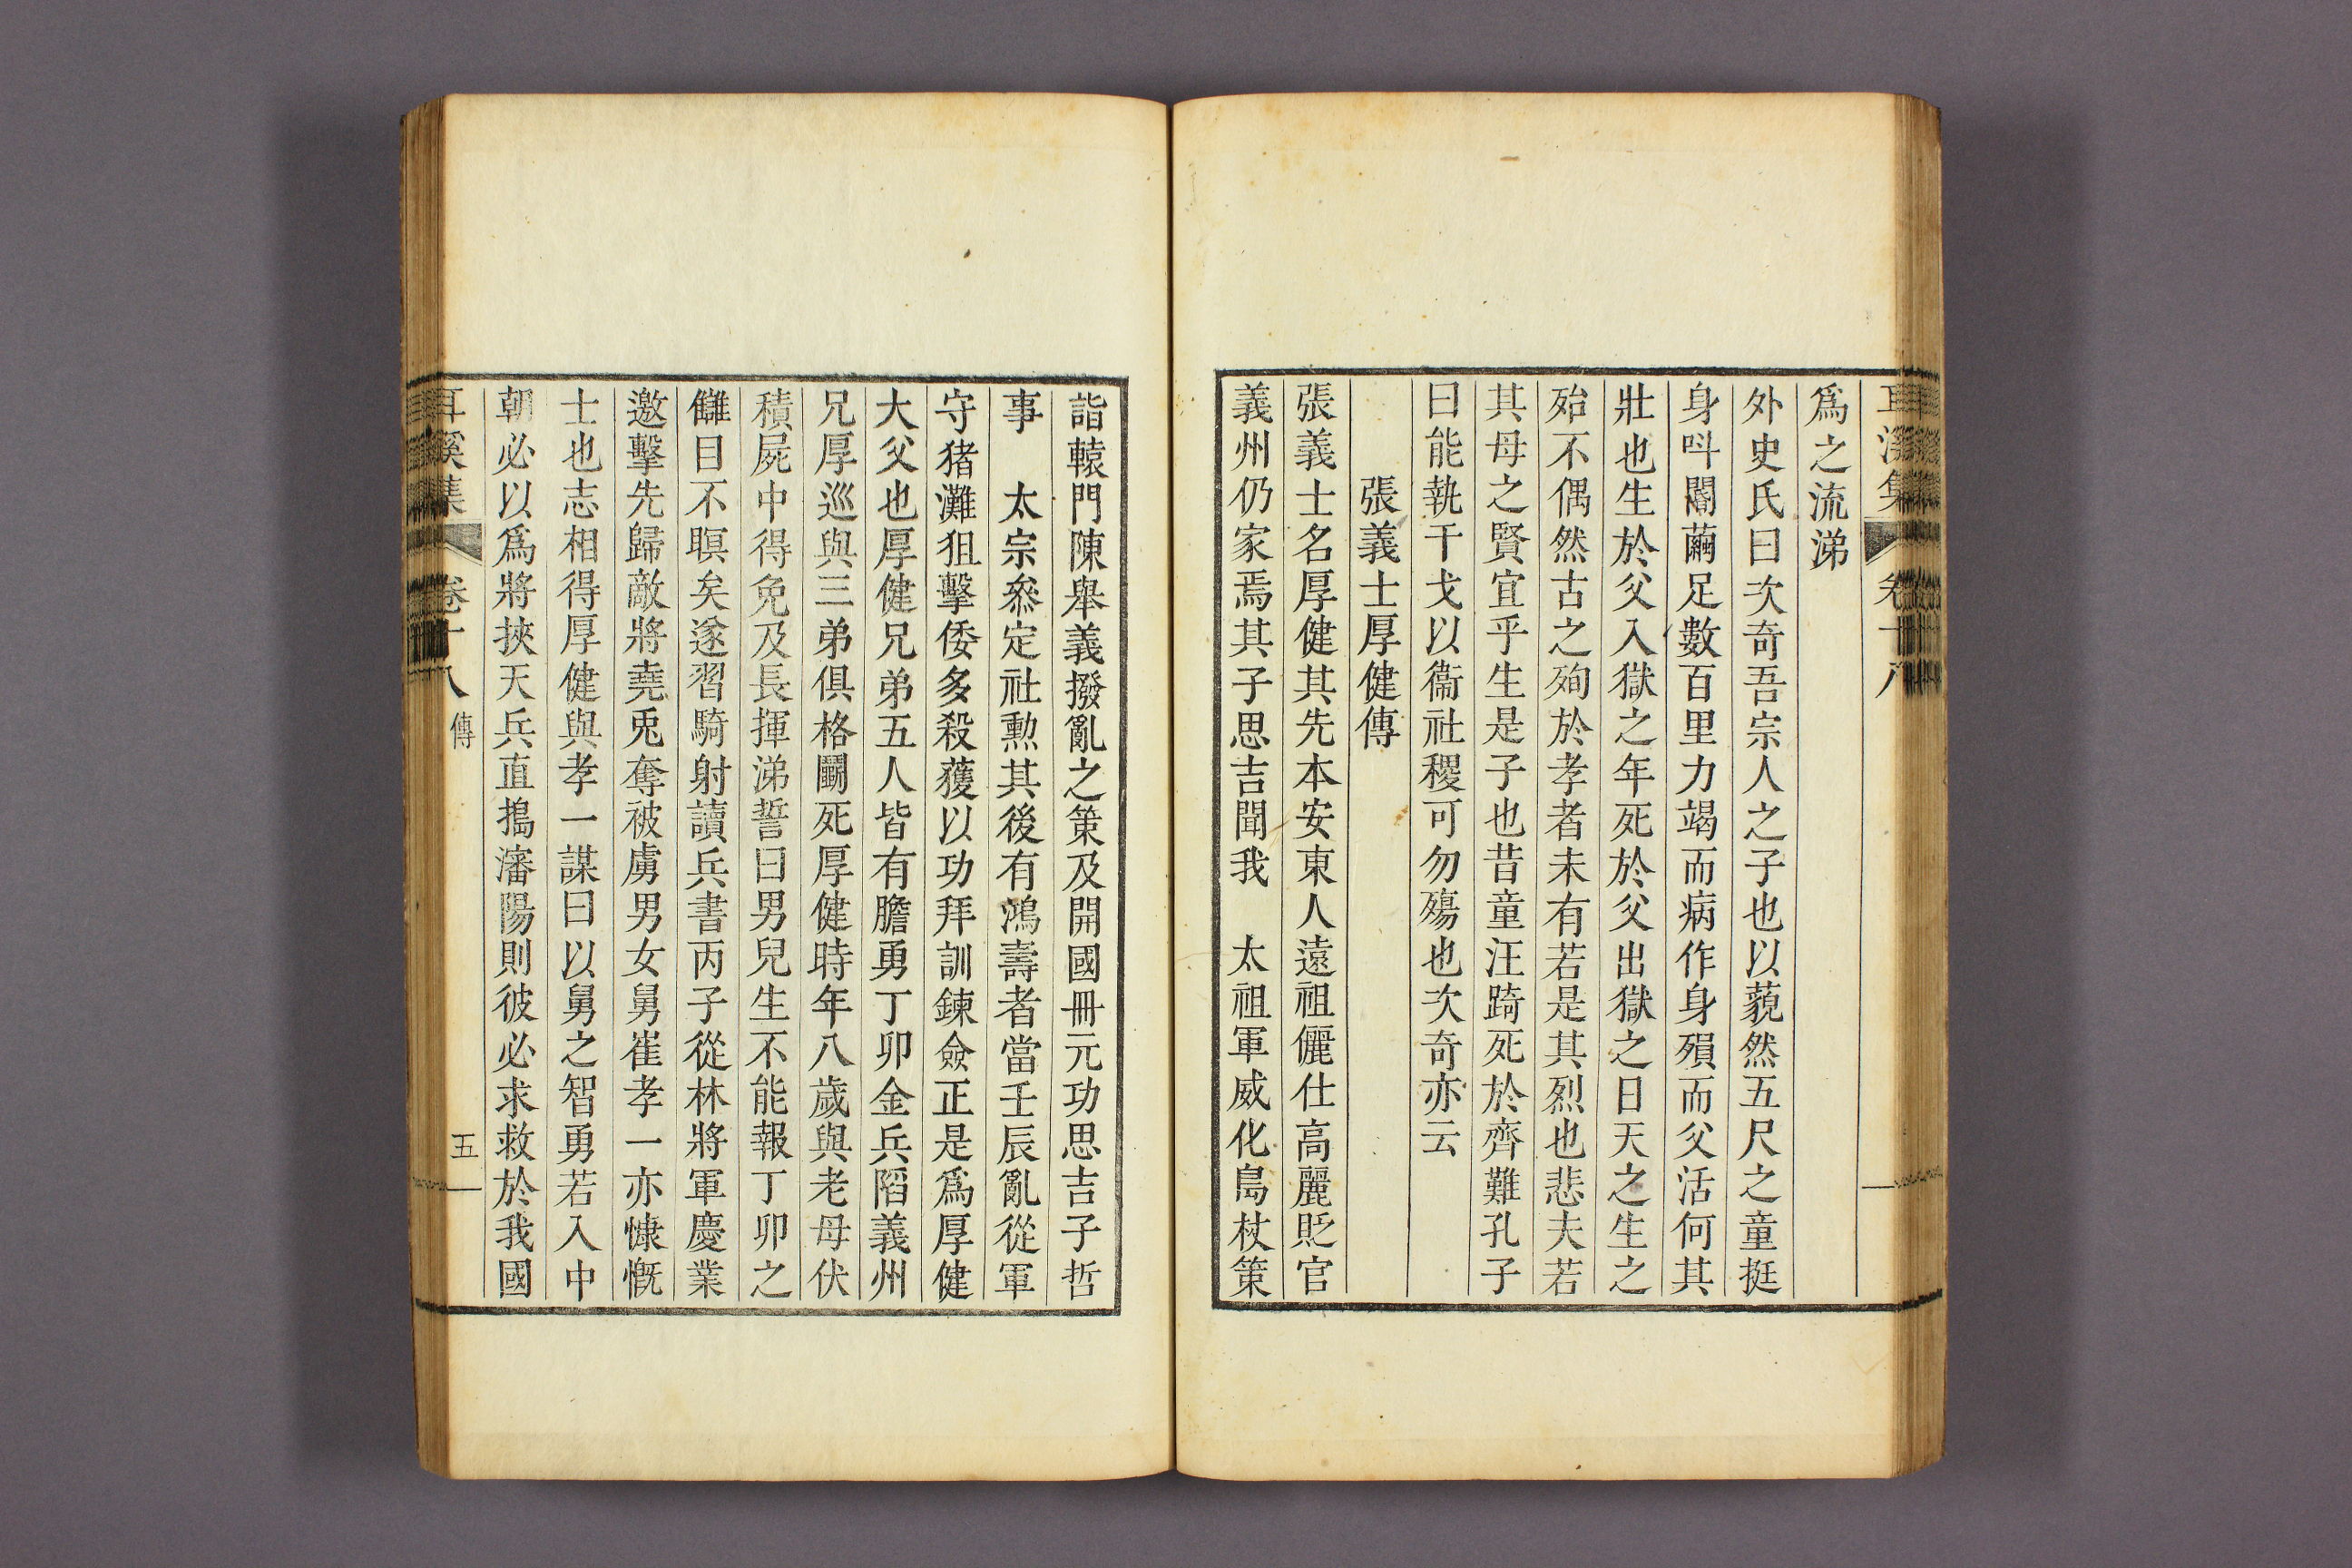 耳溪集 卷十八
爲之流涕
外史氏曰次奇吾宗人之子也以藐然五尺之童挺
身呌閽繭足數百里力竭而病作身殞而父活何其
壯也生於父入獄之年死於父出獄之日天之生之
殆不偶然古之殉於孝者未有若是其烈也悲夫若
其母之賢宜乎生是子也昔童汪踦死於齊難孔子
曰能執干戈以衞社稷可勿殤也次奇亦云
張義士厚健傳
張義士名厚健其先本安東人遠祖儷仕高麗貶官
義州仍家焉其子思吉聞我 太祖軍威化島杖策
詣轅門陳舉義撥亂之策及開國冊元功思吉子哲
事 太宗叅定社勲其後有鴻壽者當壬辰亂從軍
守猪灘狙擊倭多殺獲以功拜訓鍊僉正是爲厚健
大父也厚健兄弟五人皆有膽勇丁卯金兵陷義州
兄厚巡與三弟俱格鬬死厚健時年八歲與老母伏
積屍中得免及長揮涕誓曰男兒生不能報丁卯之
讎目不瞑矣遂習騎射讀兵書丙子從林將軍慶業
邀擊先歸敵將堯兎奪被虜男女舅崔孝一亦慷慨
士也志相得厚健與孝一謀曰以舅之智勇若入中
朝必以爲將挾天兵直搗瀋陽則彼必求救於我國
耳溪集 卷十八 傳 五